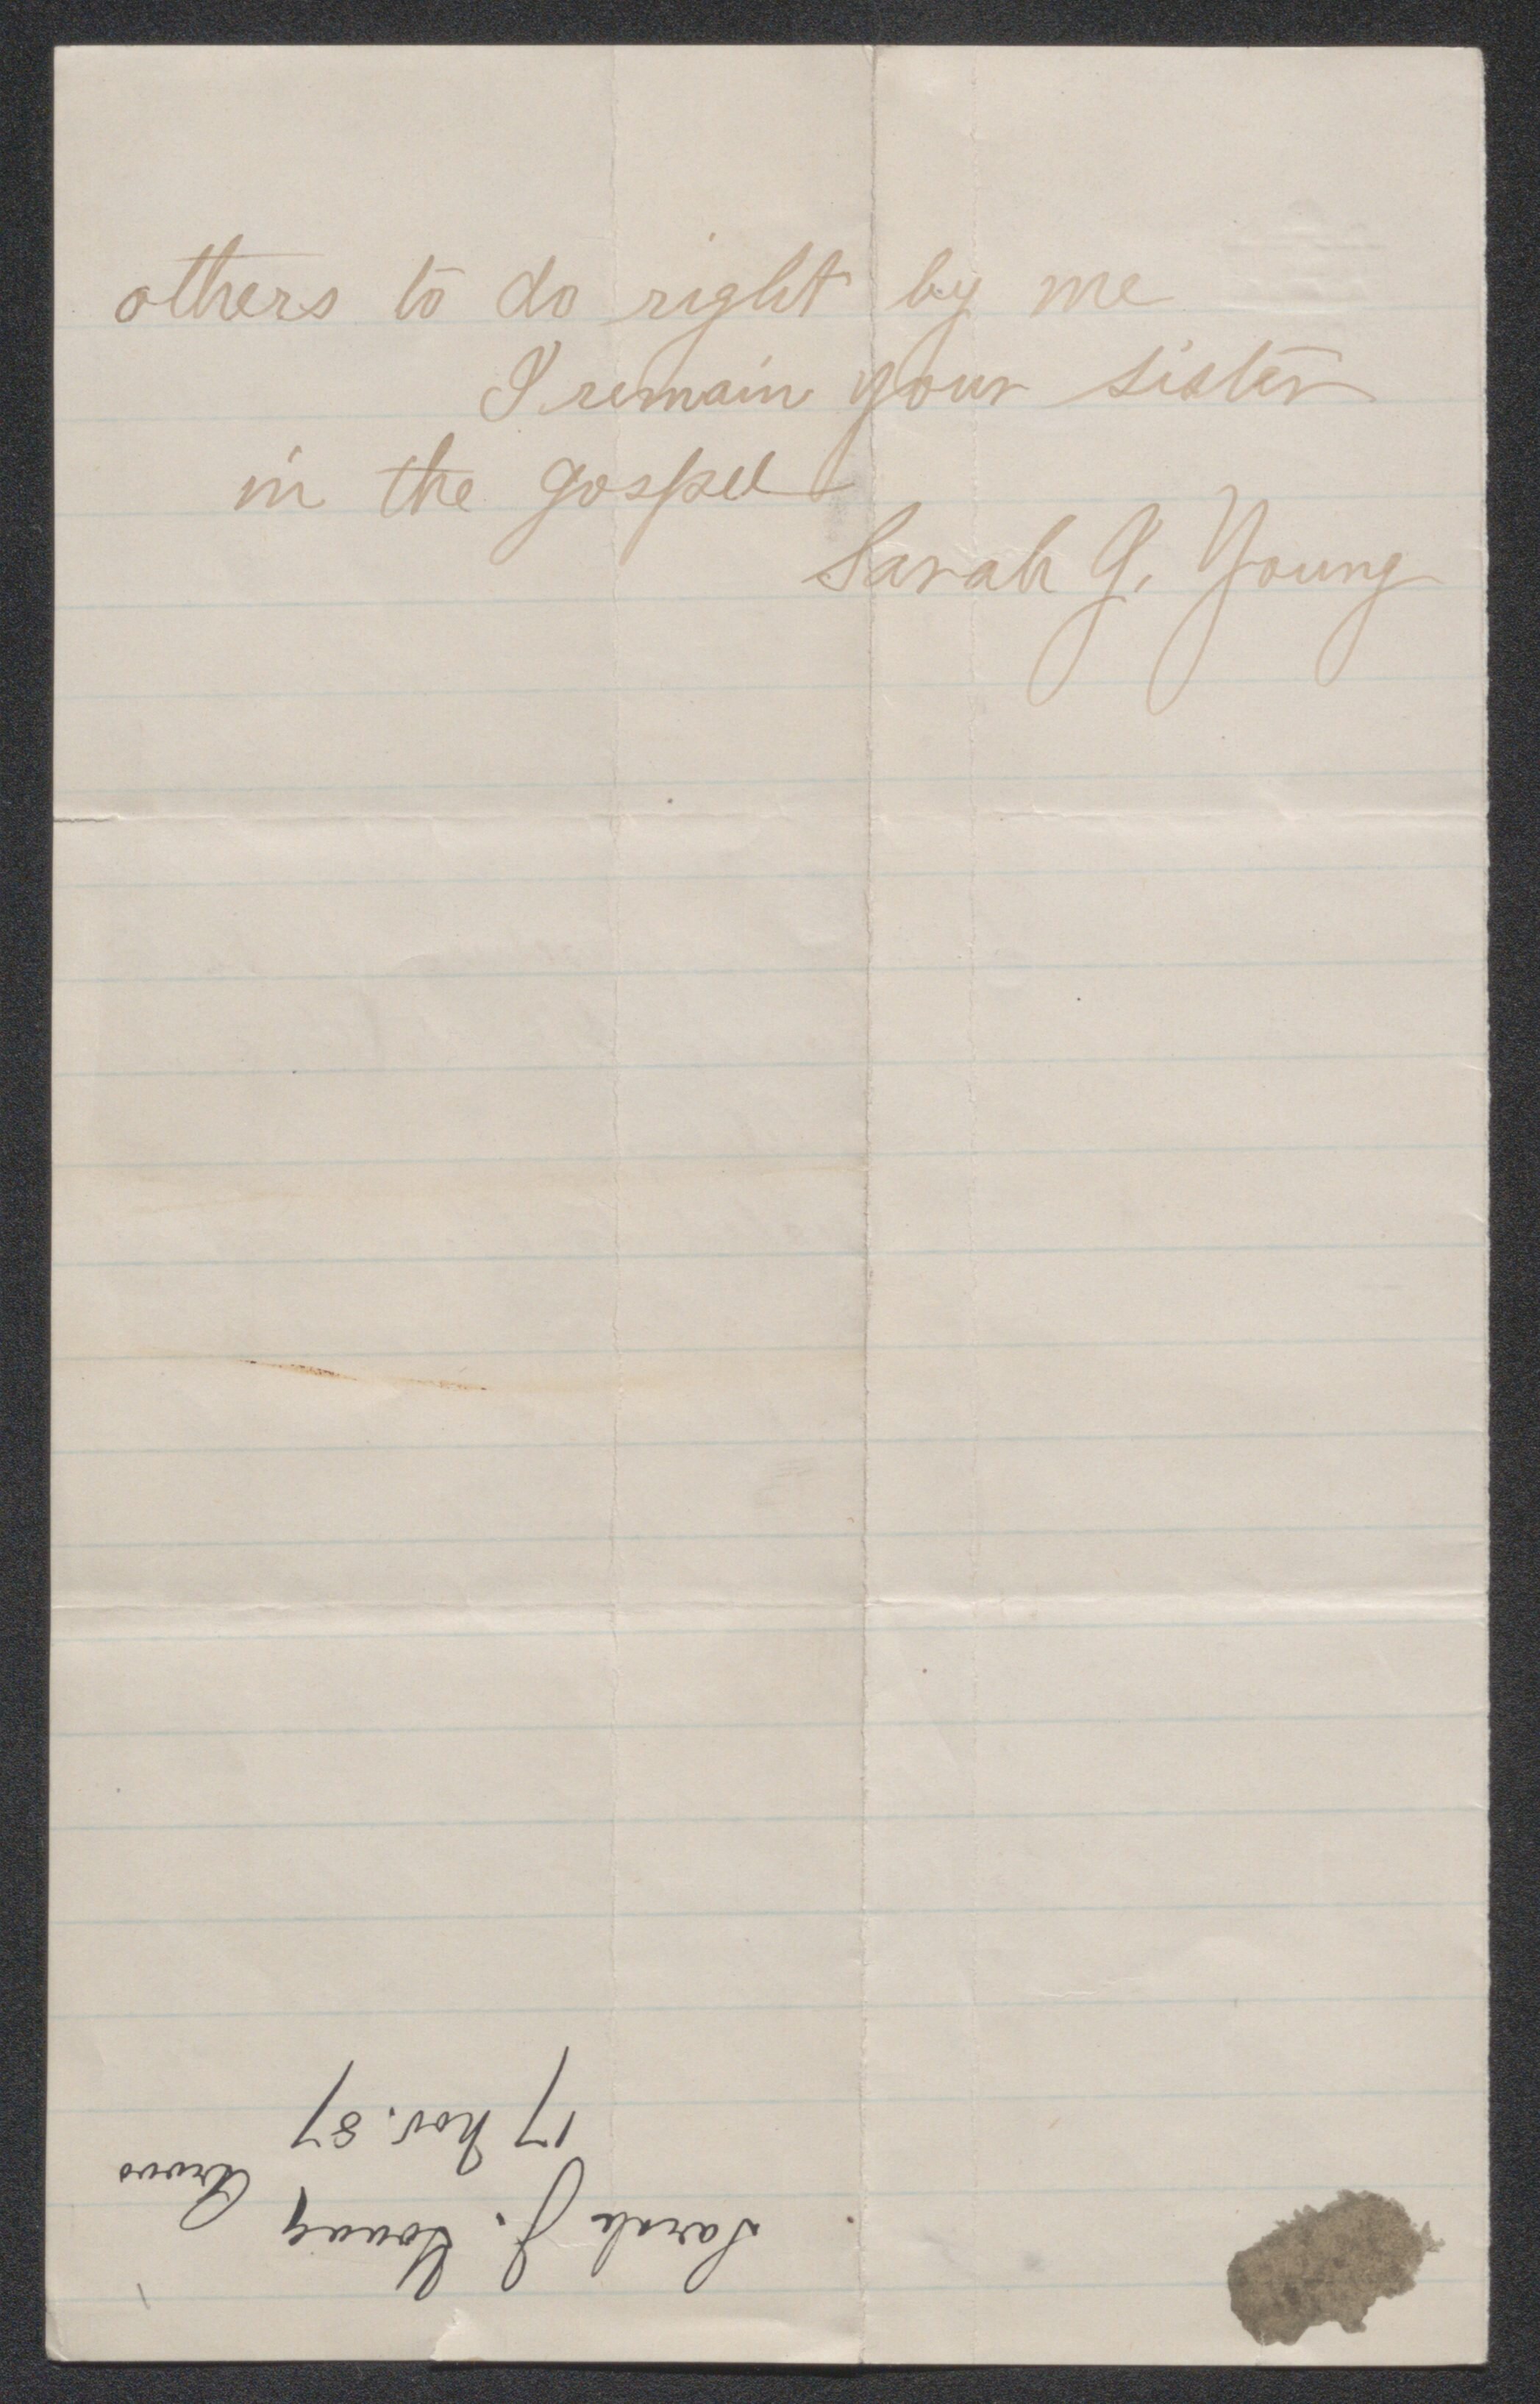 others to do right by me
I remain your sister
in the gospel
Sarah J. Young
Sarah J. Young
17 Nov. 87